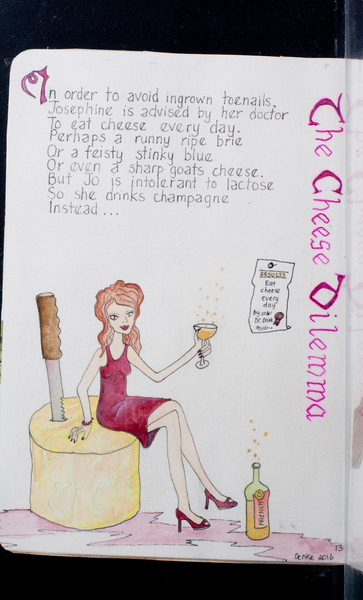 In order to avoid ingrown toenails,
Josephine is advised by her doctor
To eat cheese every day.
Perhaps a runny ripe brie
Or a feisty stinky blue
Or even a sharp goats cheese.
But Jo is intolerant to lactose
So she drinks champagne
Instead ...
The Cheese Dilemma
RESULTS
Eat
cheese
every
day
By order
Dr.
FRENCH
13
2016